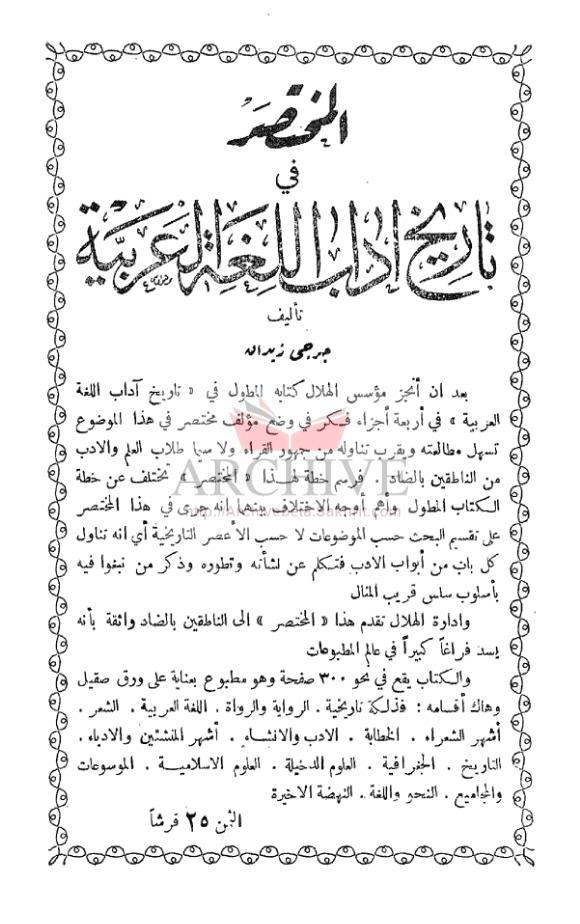 المختصر
في
تاريخ اداب اللغة العربية
تأليف
جرجى زيدان
بعد ان أنجز مؤسس الهلال كتابه المطول في « تاريخ آداب اللغة
العربية » في أربعة أجزاء فكر في وضع مؤلف مختصر في هذا الموضوع
تسهل مطالعته ويقرب تناوله من جمهور القراء ولا سيما طلاب العلم والادب
من الناطقين بالضاد . فرسم خطة لهذا « المختصر » تختلف عن خطة
ARCHIVE
http://Archivebeta.Sakhrit.com
الكتاب المطول وأهم أوجه الاختلاف بينهما انه جرى في هذا المختصر
على تقسيم البحث حسب الموضوعات لا حسب الأعصر التاريخية أي انه تناول
كل باب من أبواب الادب فتكلم عن نشأته وتطوره وذكر من نبغوا فيه
بأسلوب سلس قريب المنال
وادارة الهلال تقدم هذا « المختصر » الى الناطقين بالضاد واثقة بأنه
يسد فراغاً كبيراً في عالم المطبوعات
والكتاب يقع في نحو ٣٠٠ صفحة وهو مطبوع بعناية على ورق صقيل
وهاك أقسامه : فذلكة تاريخية . الرواية والرواة . اللغة العربية . الشعر .
أشهر الشعراء . الخطابة . الادب والانشاء . أشهر المنشئين والادباء .
التاريخ . الجغرافية . العلوم الدخيلة . العلوم الاسلامية . الموسوعات
والمجاميع . النحو واللغة . النهضة الاخيرة
الثمن ٢٥ قرشاً